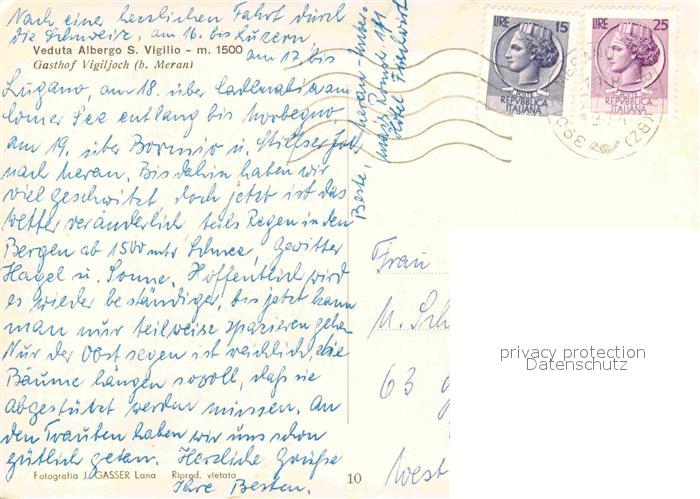 Nach einer herzlichen Fahrt durch
die Schweiz, am 16. bis Luzern
Veduta Albergo S. Vigilio - m. 1500
am 17. bis
Gasthof Vigiljoch (b. Meran)
Lugano, am 18. über am
Comer See entlang bis Morbegno
am 19. über Bormio u. Stilfser Joch
nach Meran. Bis dahin haben wir
viel geschwitzt doch jetzt ist das
Wetter veränderlich teils Regen in den
Bergen ab 1500 mtr Schnee, Gewitter
Hagel u. Sonne. Hoffentlich wird
es wieder beständiger, bis jetzt kann
man nur teilweise spazieren gehen
Nur der Obstsegen ist reichlich, die
Bäume hängen so voll, daß sie
abgestützt werden müssen. An
den Trauben haben wir uns schon
gütlich getan. Herzliche Grüße
Fotografia J. GASSER Lana Riprod. vietata
Ihre Besten.
10
Beste, Meran-
171
Hotel
LIRE 15
POSTE
REPVBBLICA
ITALIANA
LIRE 25
POSTE
REPVBBLICA
ITALIANA
(BZ)
Frau
M. Sch
63
West
privacy protection
Datenschutz